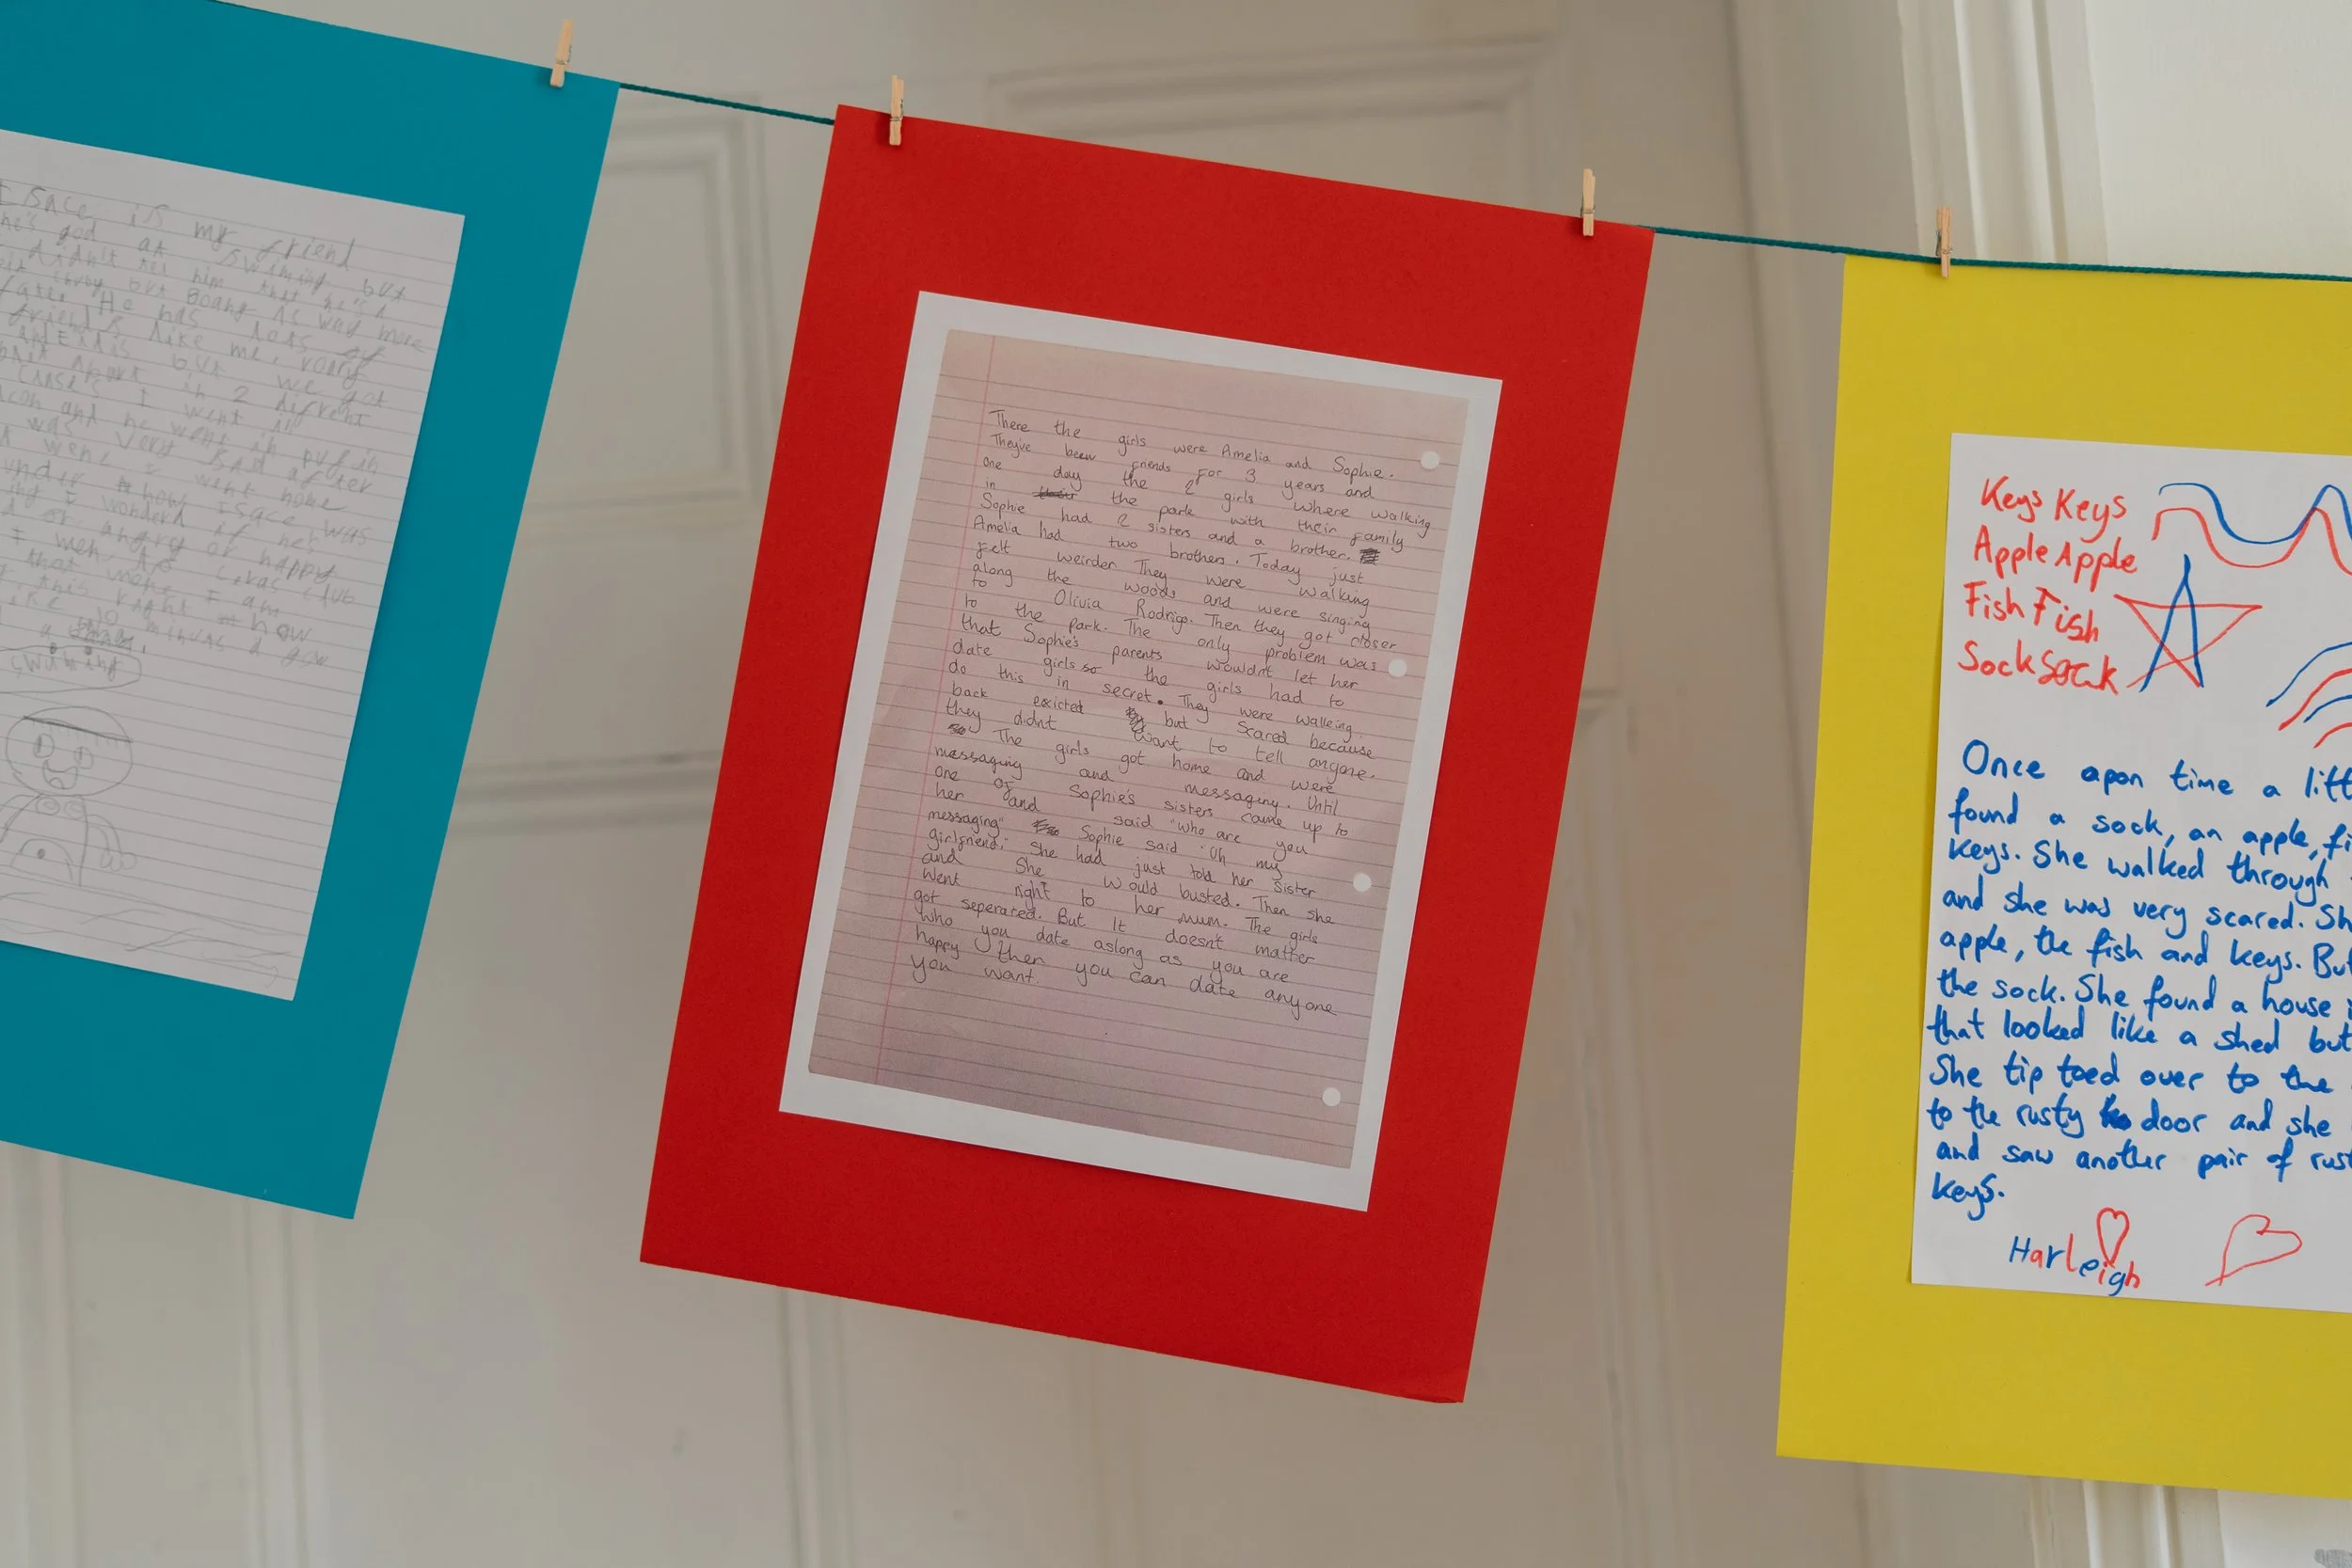 sace is my friend
he's god at swiming but
I didn't tell him that he's a
bit but is way more
later. He has lots of
friends like me, rorry
AND but we got
split apart in 2 difrent
I went in
and he went in pufin
was very sad after
went I went home
under how Isace was
I wonderd if he's
or angry or happy
I went to club
that mone I am
this right now
like 10 minuas a gow
a
swiming
There the girls were Amelia and Sophie.
They've been friends for 3 years and
one day the 2 girls where walking
in the park with their family
Sophie had 2 sisters and a brother.
Amelia had two brothers. Today just
felt weirder They were walking
along the woods and were singing
to Olivia Rodrigo. Then they got closer
to the park. The only problem was
that Sophie's parents wouldnt let her
date girls so the girls had to
do this in secret. They were walking
back exicted but scared because
they didnt want to tell anyone.
The girls got home and were
messaging and messaging. Until
one of Sophie's sisters came up to
her and said "who are you
messaging" Sophie said "Uh my
girlfriend; she had just told her sister
and she would busted. Then she
went right to her mum. The girls
got seperated. But It doesn't matter
who you date aslong as you are
happy then you can date anyone
you want.
Keys Keys
Apple Apple
Fish Fish
Sock Sock
Once apon time a litt
found a sock, an apple, fi
keys. She walked through
and she was very scared. Sh
apple, the fish and keys. But
the sock. She found a house i
that looked like a shed but
She tip toed over to the
to the rusty door and she
and saw another pair of rust
keys.
Harleigh